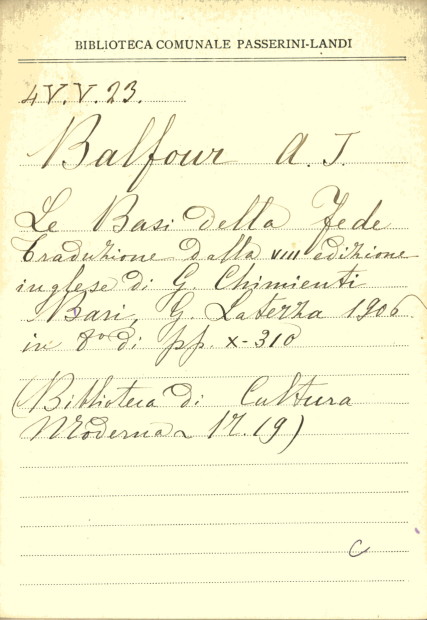 BIBLIOTECA COMUNALE PASSERINI-LANDI
4V.V.23.
Balfour A. J.
Le Basi della Fede
Traduzione dalla VIII edizione
inglese di G. Chimienti
Bari, G. Laterza 1906
in 8º di pp. X-310
(Biblioteca di Cultura
Moderna N. 19)
C